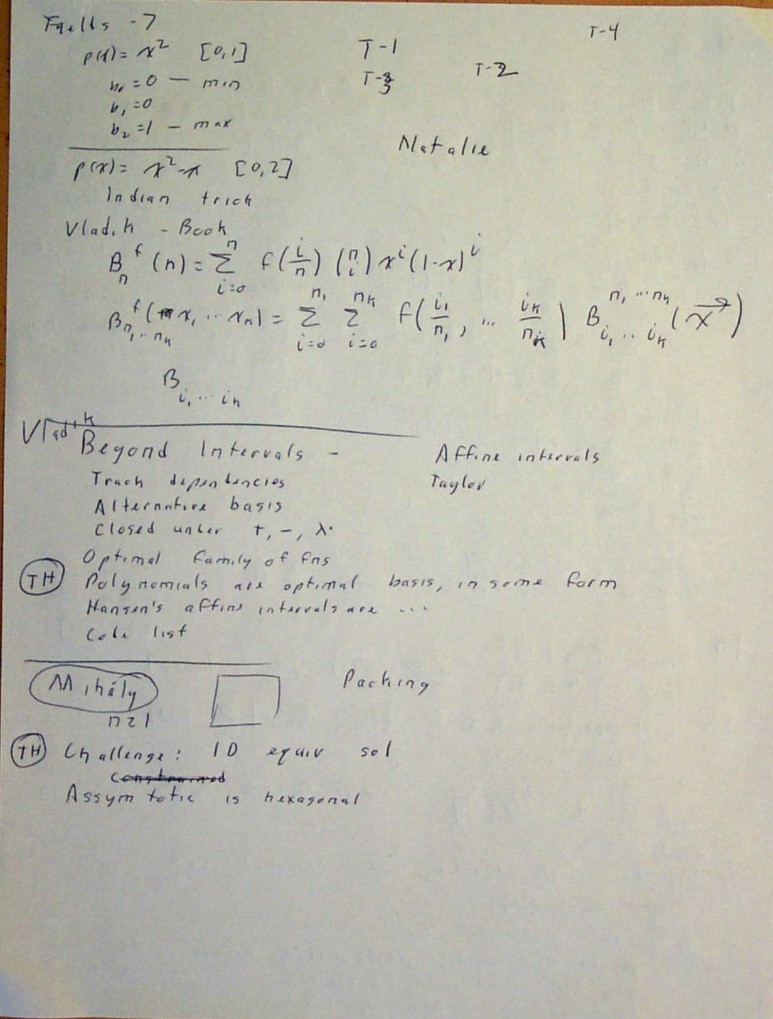 T-4
p(x) = x² [0,1] T-1
b₀ = 0 — min T-3 T-2
b₁ = 0
b₂ = 1 — max
Natalie
p(x) = x² - x [0,2]
Indian trick
Vladik - Book
Bₙᶠ(n) = Σᵢ₌₀ⁿ f(i/n) (n i) xⁱ(1-x)ⁱ
Bᶠₙ₁...ₙₖ(x₁ ... xₙ) = Σᵢ₌₀ⁿ₁ Σᵢ₌₀ⁿₖ f(i₁/n₁, ... iₖ/nₖ) Bᵢ₁...ᵢₖⁿ₁...ⁿₖ(x⃗)
Bᵢ₁...ᵢₖ
Vladik
Beyond Intervals - Affine intervals
Track dependencies Taylor
Alternative basis
Closed under +, -, λ·
Optimal family of fns
TH Polynomials are optimal basis, in some form
Hansen's affine intervals are ...
Code list
Mihály Packing
TH Challenge: 1D equiv sol
Constrained
Assymtotic is hexagonal